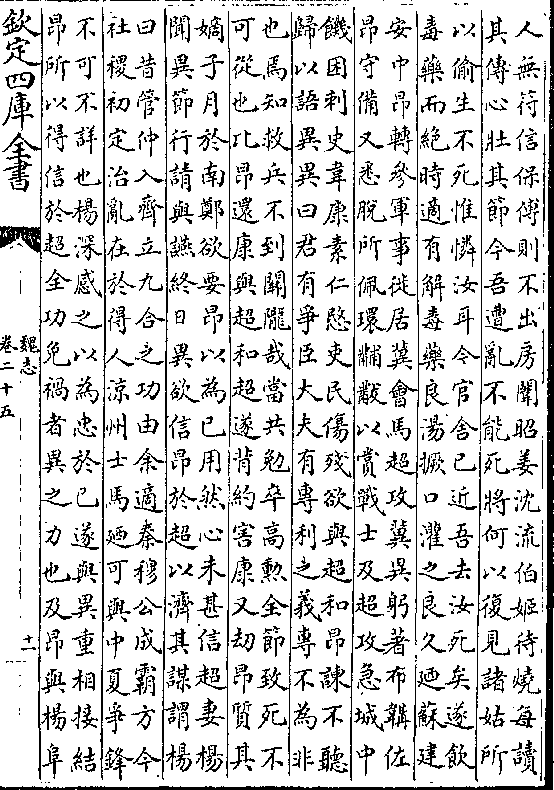 人無符信保傅則不出房闈昭姜沈流伯姬待燒每讀
其傳心壯其節今吾遭亂不能死將何以復見諸姑所
以偷生不死惟憐汝耳今官舍已近吾去汝死矣遂飲
毒藥而絕時適有解毒藥良湯撅口灌之良久廼蘇建
安中昂轉參軍事徙居冀會馬超攻冀異躬著布韝佐
昂守備又悉脫所佩環黼黻以賞戰士及超攻急城中
饑困刺史韋康素仁愍吏民傷殘欲與超和昂諫不聽
歸以語異異曰君有爭臣大夫有專利之義專不為非
也焉知救兵不到關隴哉當共勉卒高勲全節致死不
可從也比昂還康與超和超遂背約害康又刼昂質其
嫡子月於南鄭欲要昂以為已用然心未甚信超妻楊
聞異節行請與讌終日異欲信昂於超以濟其謀謂楊
曰昔管仲入齊立九合之功由余適秦穆公成霸方今
社稷初定治亂在於得人涼州士馬廼可與中夏爭鋒
不可不詳也楊深感之以為忠於已遂與異重相接結
昂所以得信於超全功免禍者異之力也及昂與楊阜
欽定四庫全書
魏志
卷二十五
十一